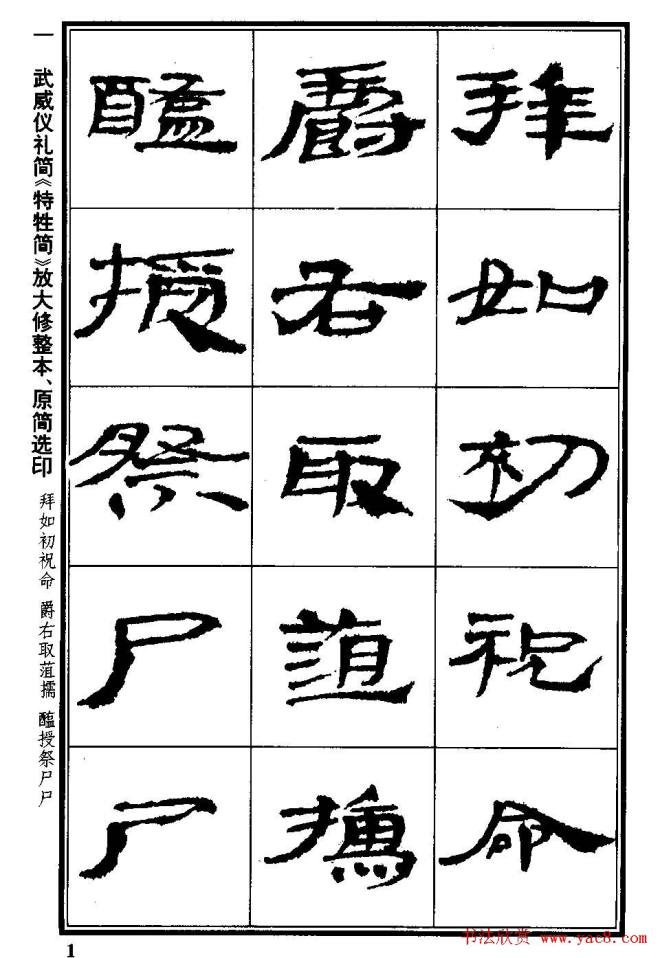 拜如初祝命
爵右取菹擩
醢授祭尸尸
一 武威仪礼简《特牲简》放大修整本、原简选印 拜如初祝命 爵右取菹擩 醢授祭尸尸
1
书法欣赏 www.yac8.com